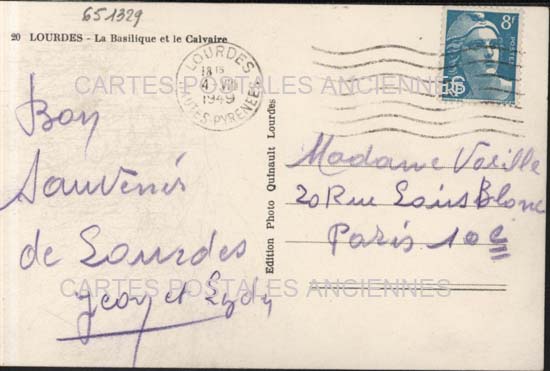 651329
20 LOURDES - La Basilique et le Calvaire
LOURDES
18
1949
HTES-PYRENEES
8F
POSTES
RF
CARTES POSTALES ANCIENNES
Bon
Souvenir
de Lourdes
Jean et
Edition Photo Quinault Lourdes
Madame
20 Rue Louis Blanc
Paris 10e
CARTES POSTALES ANCIENNES